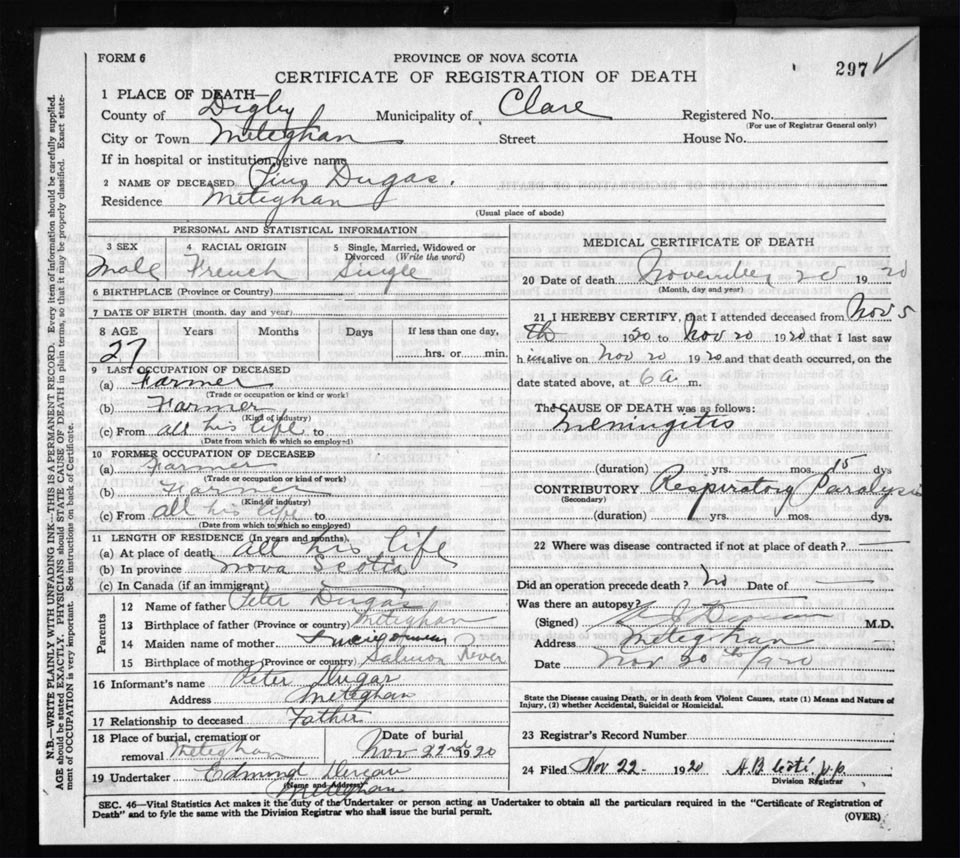 FORM 6
PROVINCE OF NOVA SCOTIA
CERTIFICATE OF REGISTRATION OF DEATH
297
1 PLACE OF DEATH—
County of Digby Municipality of Clare Registered No.
(For use of Registrar General only)
City or Town Meteghan Street House No.
If in hospital or institution, give name
2 NAME OF DECEASED Pius Dugas.
Residence Meteghan
(Usual place of abode)
PERSONAL AND STATISTICAL INFORMATION
3 SEX 4 RACIAL ORIGIN 5 Single, Married, Widowed or Divorced (Write the word)
Male French Single
6 BIRTHPLACE (Province or Country)
7 DATE OF BIRTH (month, day and year)
8 AGE Years Months Days If less than one day,
27 hrs. or min.
9 LAST OCCUPATION OF DECEASED
(a) Farmer
(Trade or occupation or kind or work)
(b) Farmer
(Kind of industry)
(c) From all his life to
(Date from which to which so employed)
10 FORMER OCCUPATION OF DECEASED
(a) Farmer
(Trade or occupation or kind of work)
(b) Farmer
(Kind of industry)
(c) From all his life to
(Date from which to which so employed)
11 LENGTH OF RESIDENCE (In years and months).
(a) At place of death all his life
(b) In province Nova Scotia
(c) In Canada (if an immigrant)
Parents
12 Name of father Peter Dugas
13 Birthplace of father (Province or country) Meteghan
14 Maiden name of mother
15 Birthplace of mother (Province or country) Salmon River
16 Informant's name Peter Dugas
Address Meteghan
17 Relationship to deceased Father
18 Place of burial, cremation or removal Meteghan Date of burial Nov 22nd 1920
19 Undertaker Edmund
(Name and Address)
Meteghan
MEDICAL CERTIFICATE OF DEATH
20 Date of death November 20 1920
(Month, day and year)
21 I HEREBY CERTIFY, that I attended deceased from Nov 5
th 1920 to Nov 20 1920 that I last saw
him alive on Nov 20 1920 and that death occurred, on the
date stated above, at 6 a m.
The CAUSE OF DEATH was as follows:
Meningitis
(duration) yrs. mos. 15 dys
CONTRIBUTORY Respiratory Paralysis
(Secondary)
(duration) yrs. mos. dys.
22 Where was disease contracted if not at place of death? —
Did an operation precede death? No Date of —
Was there an autopsy?
(Signed) M.D.
Address Meteghan
Date Nov 20th 1920
State the Disease causing Death, or in death from Violent Causes, state (1) Means and Nature of Injury, (2) whether Accidental, Suicidal or Homicidal.
23 Registrar's Record Number
24 Filed Nov 22 - 1920
Division Registrar
SEC. 46—Vital Statistics Act makes it the duty of the Undertaker or person acting as Undertaker to obtain all the particulars required in the "Certificate of Registration of
Death" and to fyle the same with the Division Registrar who shall issue the burial permit. (OVER)
N.B.—WRITE PLAINLY WITH UNFADING INK—THIS IS A PERMANENT RECORD. Every item of information should be carefully supplied.
AGE should be stated EXACTLY. PHYSICIANS should STATE CAUSE OF DEATH in plain terms, so that it may be properly classified. Exact state-
ment of OCCUPATION is very important. See instructions on back of Certificate.